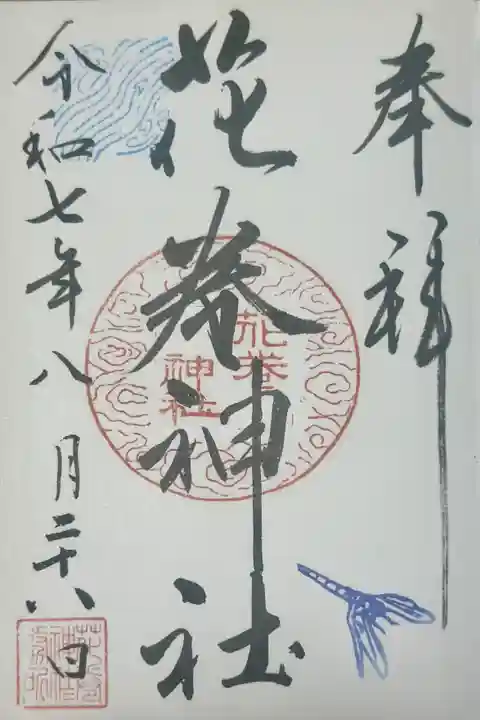 奉拝
花巻神社
令和七年八月二十八日
花巻
神社